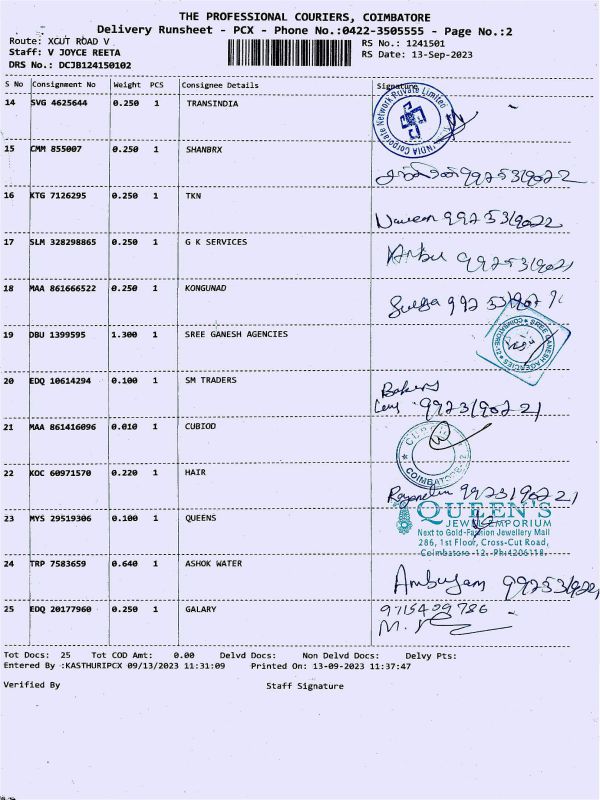 THE PROFESSIONAL COURIERS, COIMBATORE
Delivery Runsheet - PCX - Phone No.:0422-3505555 - Page No.:2
Route: XCUT ROAD V
RS No.: 1241501
Staff: V JOYCE REETA
RS Date: 13-Sep-2023
DRS No.: DCJB124150102
S No Consignment No Weight PCS Consignee Details Signature
14 SVG 4625644 0.250 1 TRANSINDIA
15 CMM 855007 0.250 1 SHANBRX
16 KTG 7126295 0.250 1 TKN
Naveen
17 SLM 328298865 0.250 1 G K SERVICES
Anbu
18 MAA 861666522 0.250 1 KONGUNAD
Surya
19 DBU 1399595 1.300 1 SREE GANESH AGENCIES
SREE GANESH AGENCIES COIMBATORE-12
20 EDQ 10614294 0.100 1 SM TRADERS
21 MAA 861416096 0.010 1 CUBIOD
COIMBATORE-12
22 KOC 60971570 0.220 1 HAIR
23 MYS 29519306 0.100 1 QUEENS
QUEEN'S
JEWEL EMPORIUM
Next to Gold-Fashion Jewellery Mall
286, 1st Floor, Cross-Cut Road,
Coimbatore -12. Ph:4206118.
24 TRP 7583659 0.640 1 ASHOK WATER
25 EDQ 20177960 0.250 1 GALARY
9715409786
Tot Docs: 25 Tot COD Amt: 0.00 Delvd Docs: Non Delvd Docs: Delvy Pts:
Entered By :KASTHURIPCX 09/13/2023 11:31:09 Printed On: 13-09-2023 11:37:47
Verified By Staff Signature